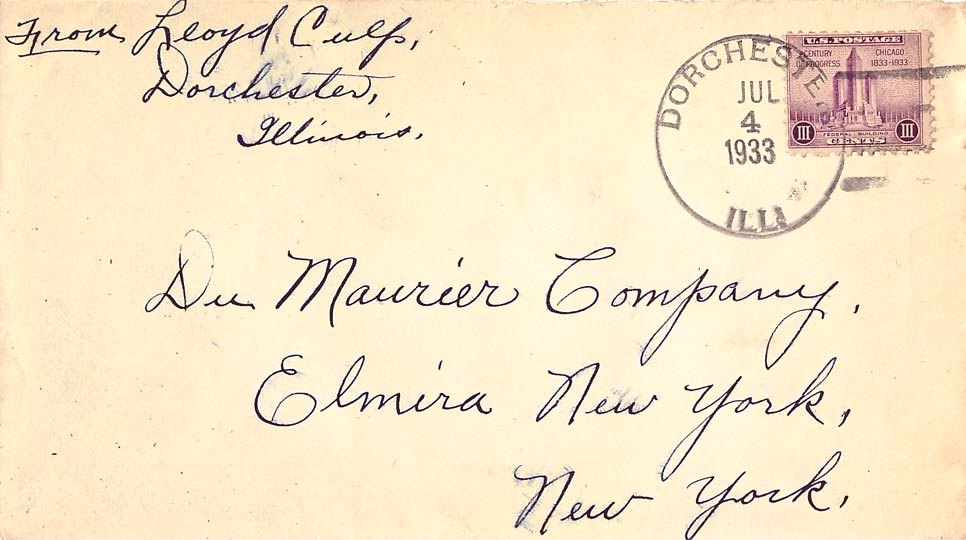 From Lloyd Culp,
Dorchester,
Illinois.
DORCHESTER,
JUL
4
1933
ILL
U.S. POSTAGE
CENTURY OF PROGRESS
CHICAGO 1833-1933
III III
FEDERAL BUILDING
CENTS
Du Maurier Company,
Elmira New York,
New York,